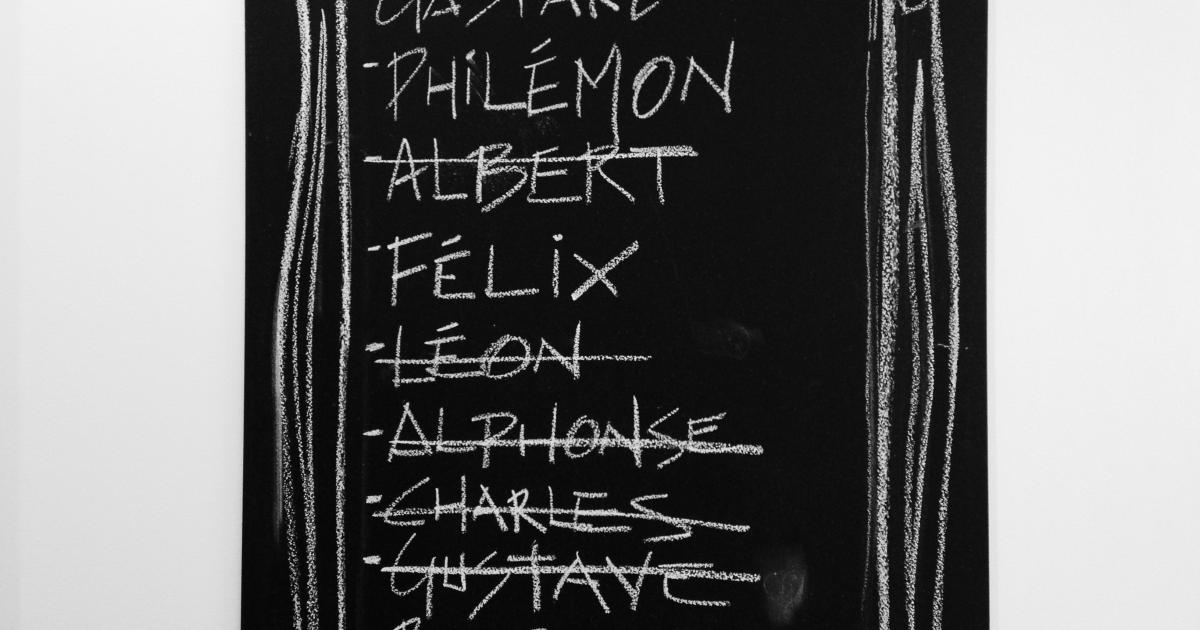 GASPARD
- PHILÉMON
- ALBERT
- FÉLIX
- LÉON
- ALPHONSE
- CHARLES
- GUSTAVE